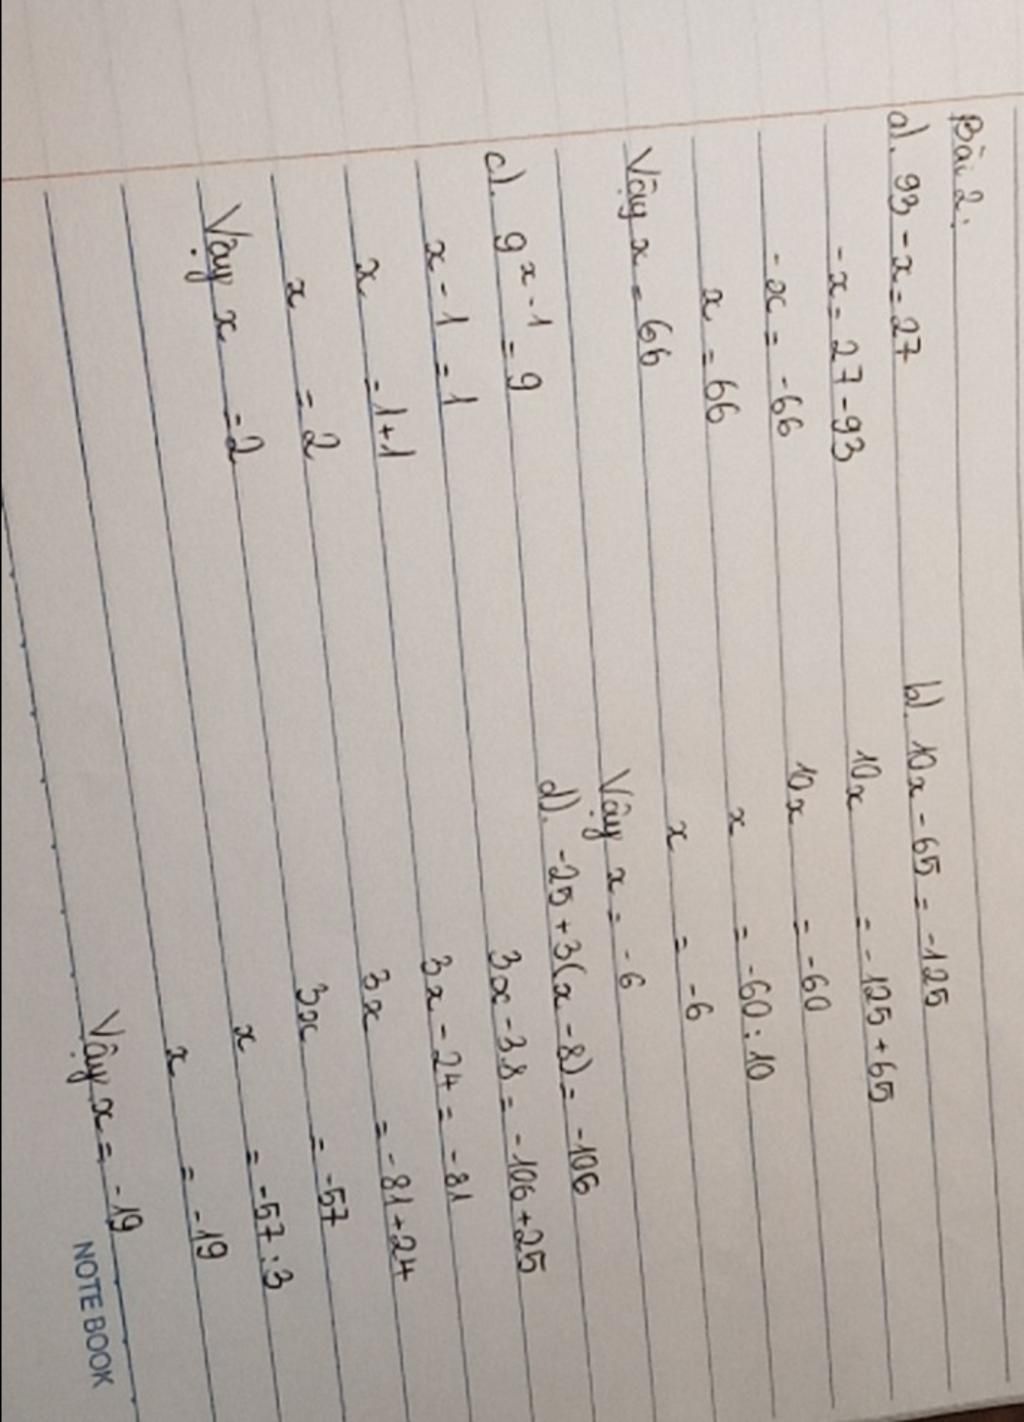 Bài 2:
a). 93 - x = 27
- x = 27 - 93
- x = -66
x = 66
Vậy x = 66
b). 10x - 65 = -125
10x = -125 + 65
10x = -60
x = -60 : 10
x = -6
Vậy x = -6
c). 9^x - 1 = 9
x - 1 = 1
x = 1+1
x = 2
Vậy x = 2
d). -25 + 3(x - 8) = -106
3x - 3.8 = -106 + 25
3x - 24 = -81
3x = -81 + 24
3x = -57
x = -57 : 3
x = -19
Vậy x = -19
NOTE BOOK